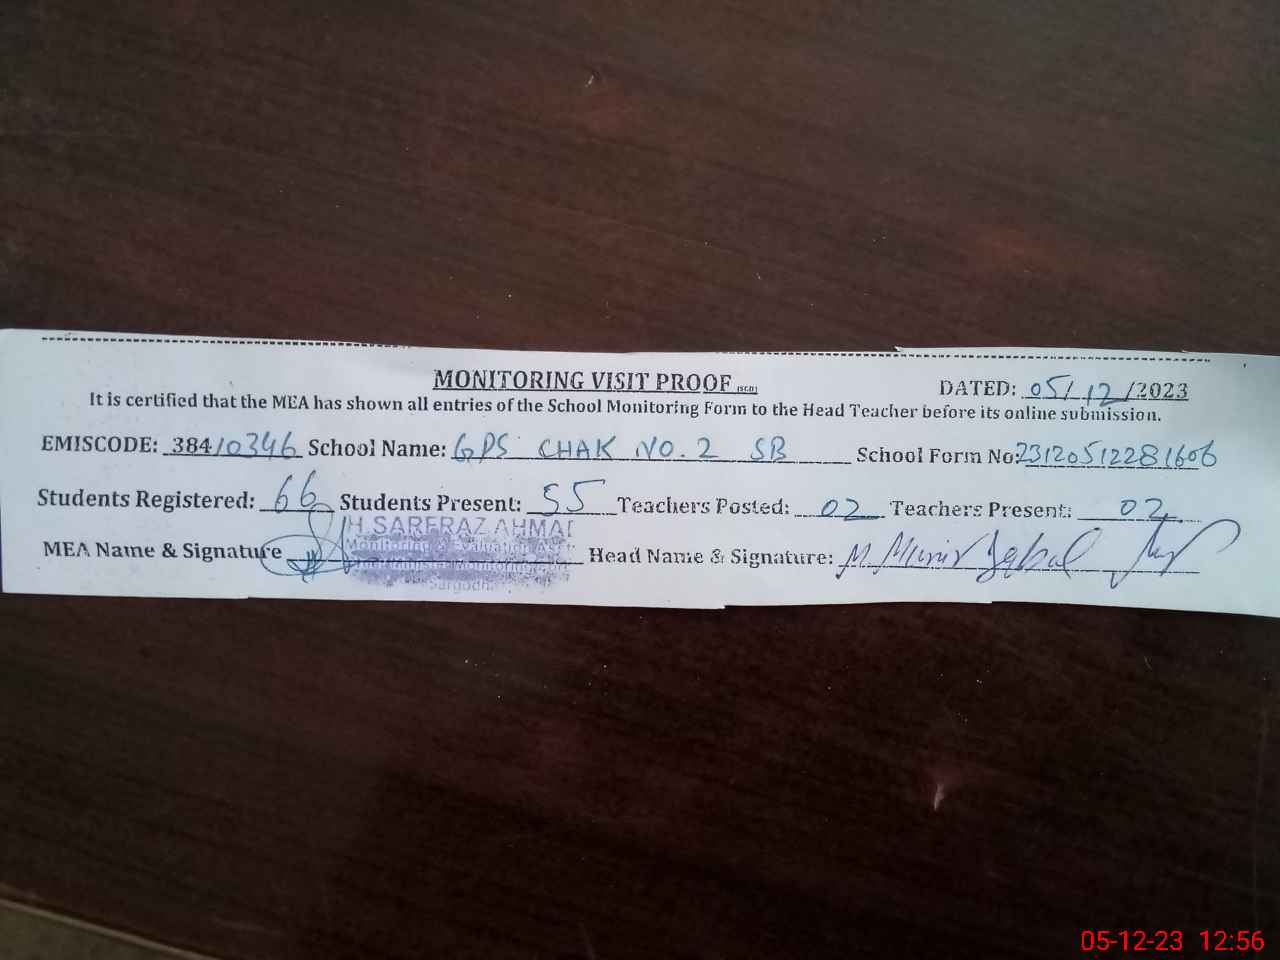 MONITORING VISIT PROOF (SED) DATED: 05/12/2023
It is certified that the MEA has shown all entries of the School Monitoring Form to the Head Teacher before its online submission.
EMISCODE: 384/0346 School Name: GPS CHAK NO. 2 SB School Form No: 23120512281606
Students Registered: 66 Students Present: 55 Teachers Posted: 02 Teachers Present: 02
H.SARFRAZ AHMAD
MEA Name & Signature Monitoring & Evaluation Head Name & Signature: M. Munir Iqbal
Monitoring
Sargodha
05-12-23 12:56